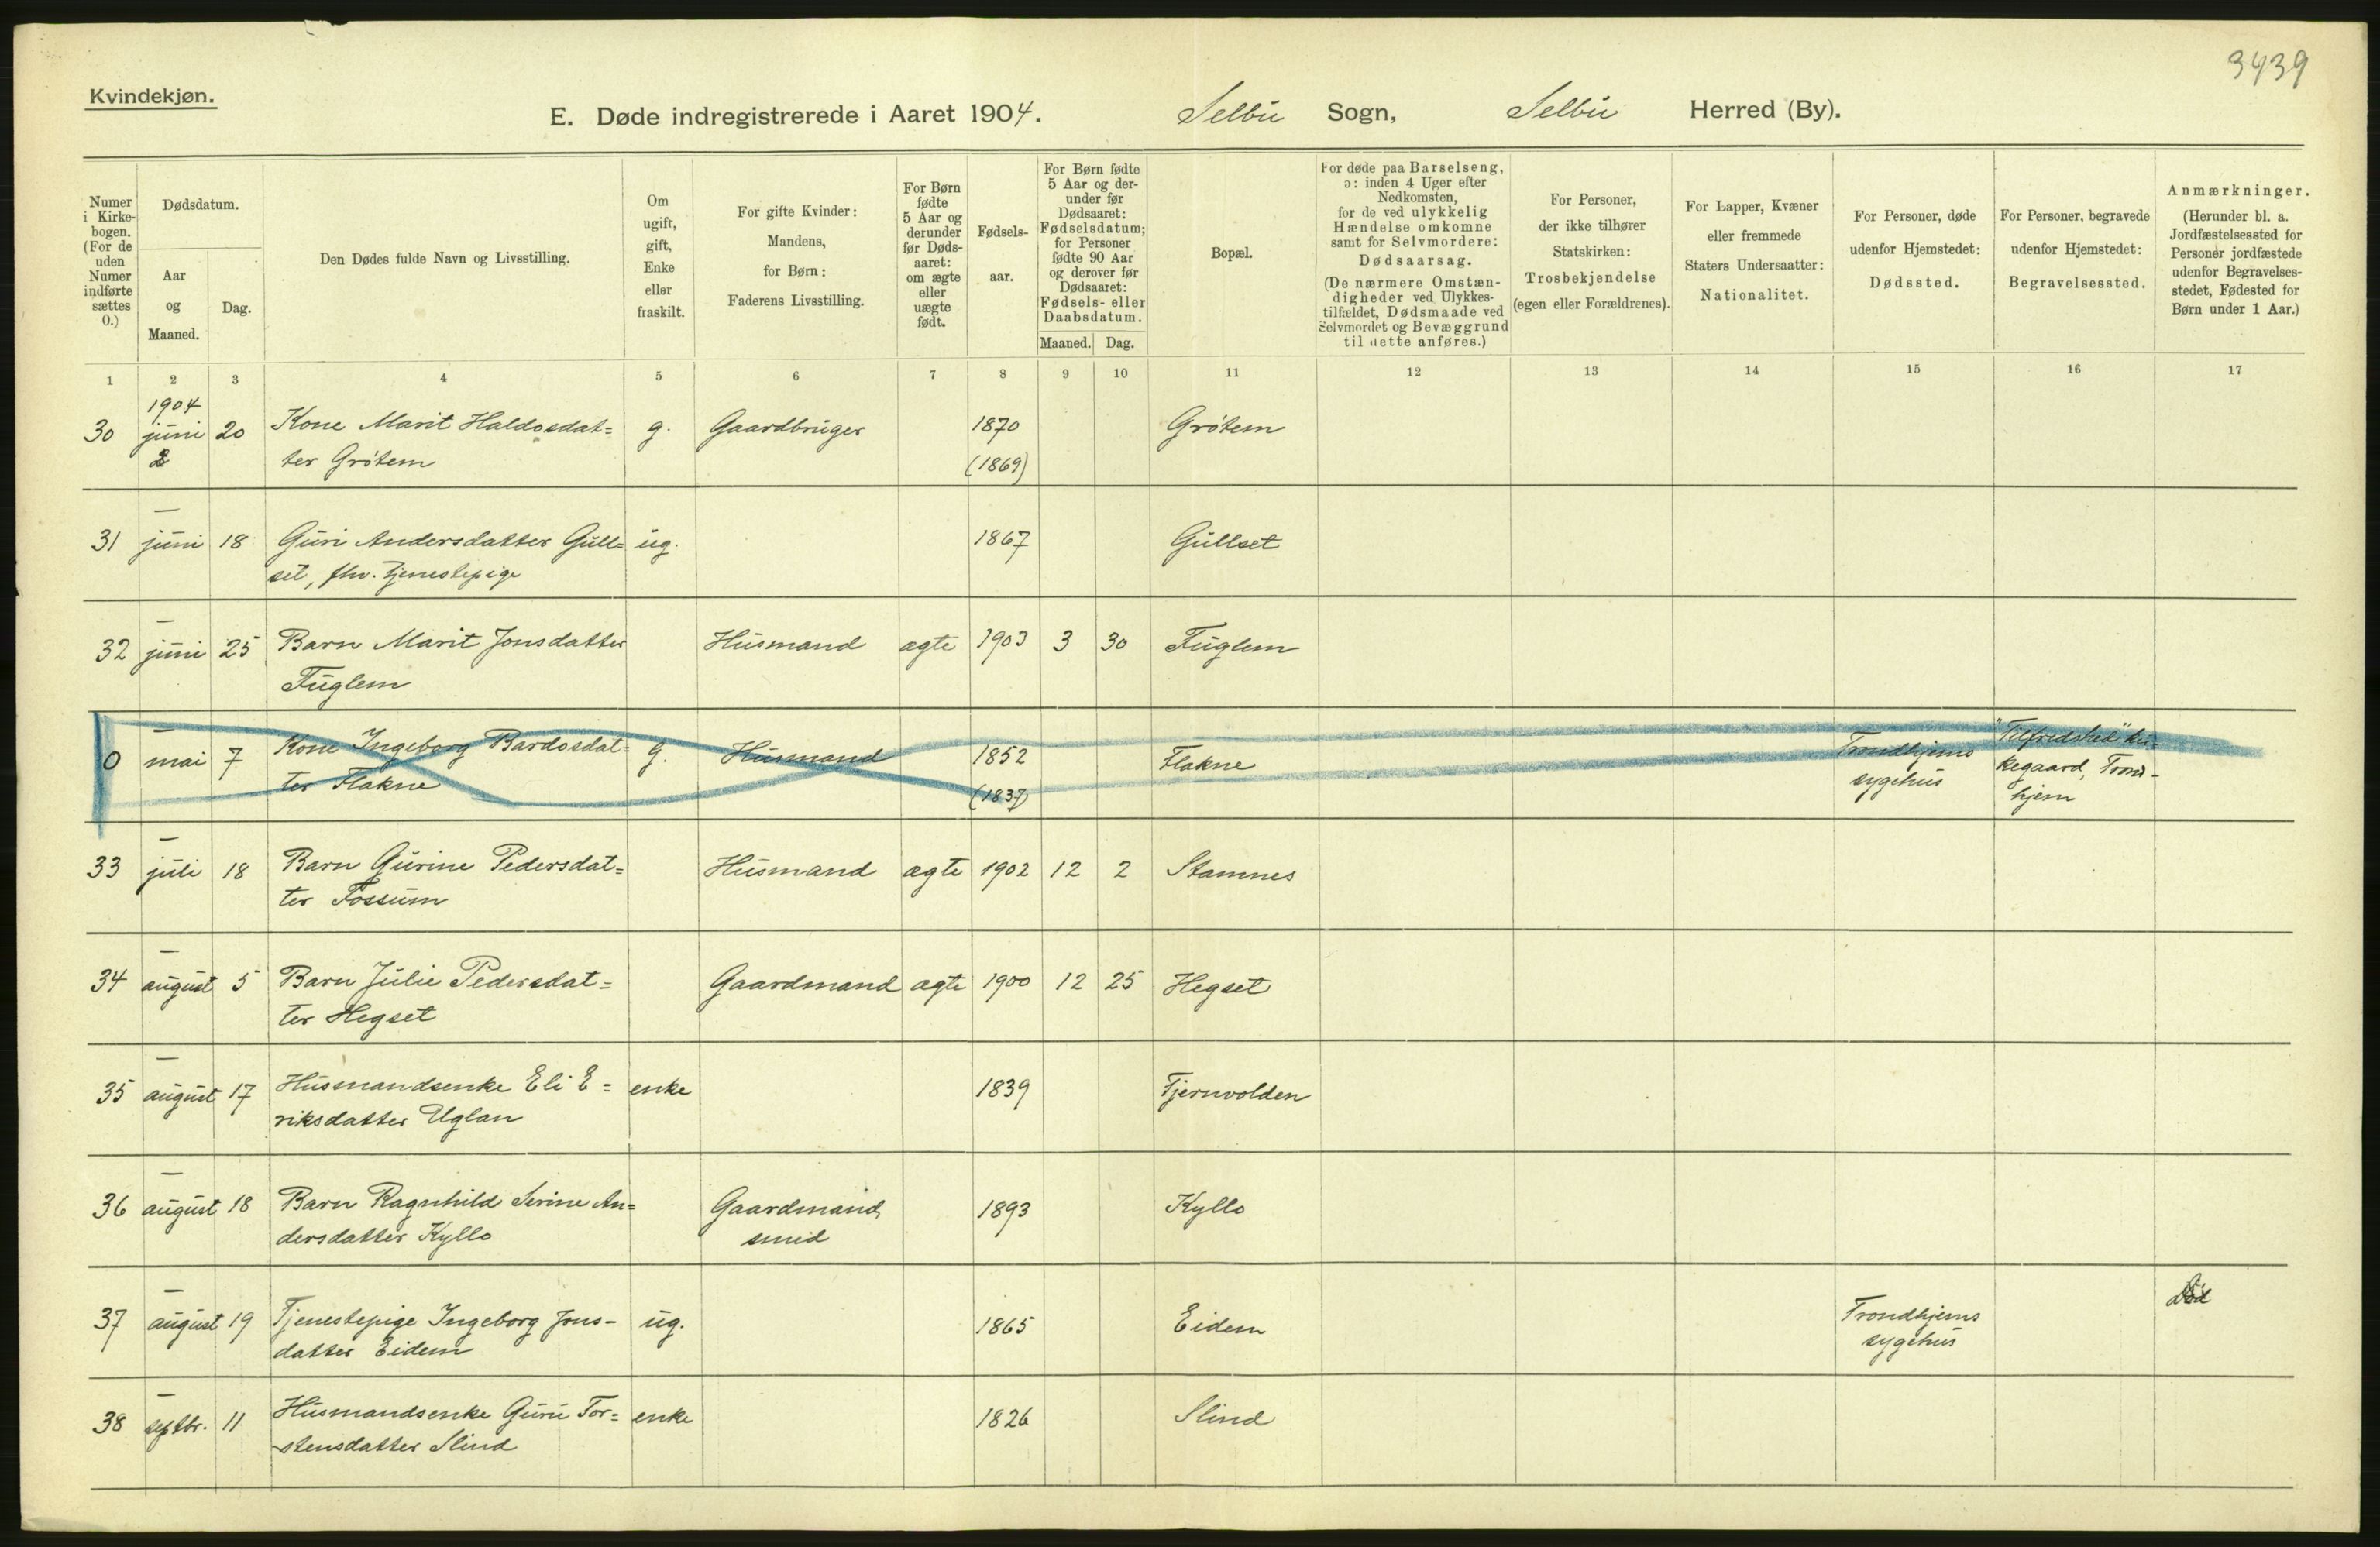 3439
Kvindekjøn.
E. Døde indregistrerede i Aaret 1904. Selbu Sogn, Selbu Herred (By).
Numer i Kirkebogen. (For de uden Numer indførte sættes 0.)
Dødsdatum.
Aar og Maaned.
Dag.
Den Dødes fulde Navn og Livsstilling.
Om ugift, gift, Enke eller fraskilt.
For gifte Kvinder: Mandens, for Børn: Faderens Livsstilling.
For Børn fødte 5 Aar og derunder før Dødsaaret: om ægte eller uægte født.
Fødselsaar.
For Børn fødte 5 Aar og derunder før Dødsaaret: Fødselsdatum; for Personer fødte 90 Aar og derover før Dødsaaret: Fødsels- eller Daabsdatum.
Maaned. Dag.
Bopæl.
For døde paa Barselseng, ɔ: inden 4 Uger efter Nedkomsten, for de ved ulykkelig Hændelse omkomne samt for Selvmordere: Dødsaarsag.
(De nærmere Omstændigheder ved Ulykkestilfældet, Dødsmaade ved Selvmordet og Bevæggrund til dette anføres.)
For Personer, der ikke tilhører Statskirken: Trosbekjendelse (egen eller Forældrenes).
For Lapper, Kvæner eller fremmede Staters Undersaatter: Nationalitet.
For Personer, døde udenfor Hjemstedet: Dødssted.
For Personer, begravede udenfor Hjemstedet: Begravelsessted.
Anmærkninger. (Herunder bl. a. Jordfæstelsessted for Personer jordfæstede udenfor Begravelsesstedet, Fødested for Børn under 1 Aar.)
1 2 3 4 5 6 7 8 9 10 11 12 13 14 15 16 17
1904
30 juni 20 Kone Marit Haldosdat= g. Gaardbruger 1870 Grötem
2 ter Grötem (1869)
—
31 juni 18 Guri Andersdatter Gull= ug. 1867 Gullset
set, fhv. tjenestepige
—
32 juni 25 Barn Marit Jonsdatter Husmand ægte 1903 3 30 Fuglem
Fuglem
—
0 mai 7 Kone Ingeborg Bardosdat= g. Husmand 1852 Flakne Trondhjems "Tilfredshet" kir=
ter Flakne (1837) sygehus kegaard, Trond-
hjem
—
33 juli 18 Barn Gurine Pedersdat= Husmand ægte 1902 12 2 Stamnes
ter Fossum
—
34 august 5 Barn Julie Pedersdat= Gaardmand ægte 1900 12 25 Hegset
ter Hegset
—
35 august 17 Husmandsenke Eli E= enke 1839 Tjernvolden
riksdatter Uglan
—
36 august 18 Barn Ragnhild Serine An= Gaardmand, 1893 Kyllo
dersdatter Kyllo smed
—
37 august 19 Tjenestepige Ingeborg Jons- ug. 1865 Eidem Trondhjems
datter Eidem sygehus
—
38 septbr. 11 Husmandsenke Guru Tor= enke 1826 Slind
stensdatter Slind